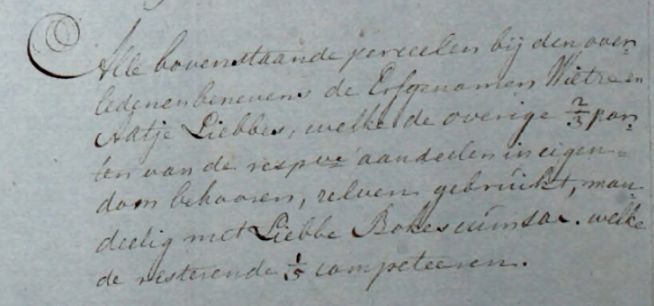 Alle bovenstaande perceelen bij den over-
ledenen benevens de Erfgenamen Wietze en
Aatje Liebbes, welke de overige 2/3 par-
ten van de respve aandeelen in eigen-
dom behooren, zelven gebruikt, man-
deelig met Liebbe Bokes cum soc. welke
de resterende 1/3 competeeren.